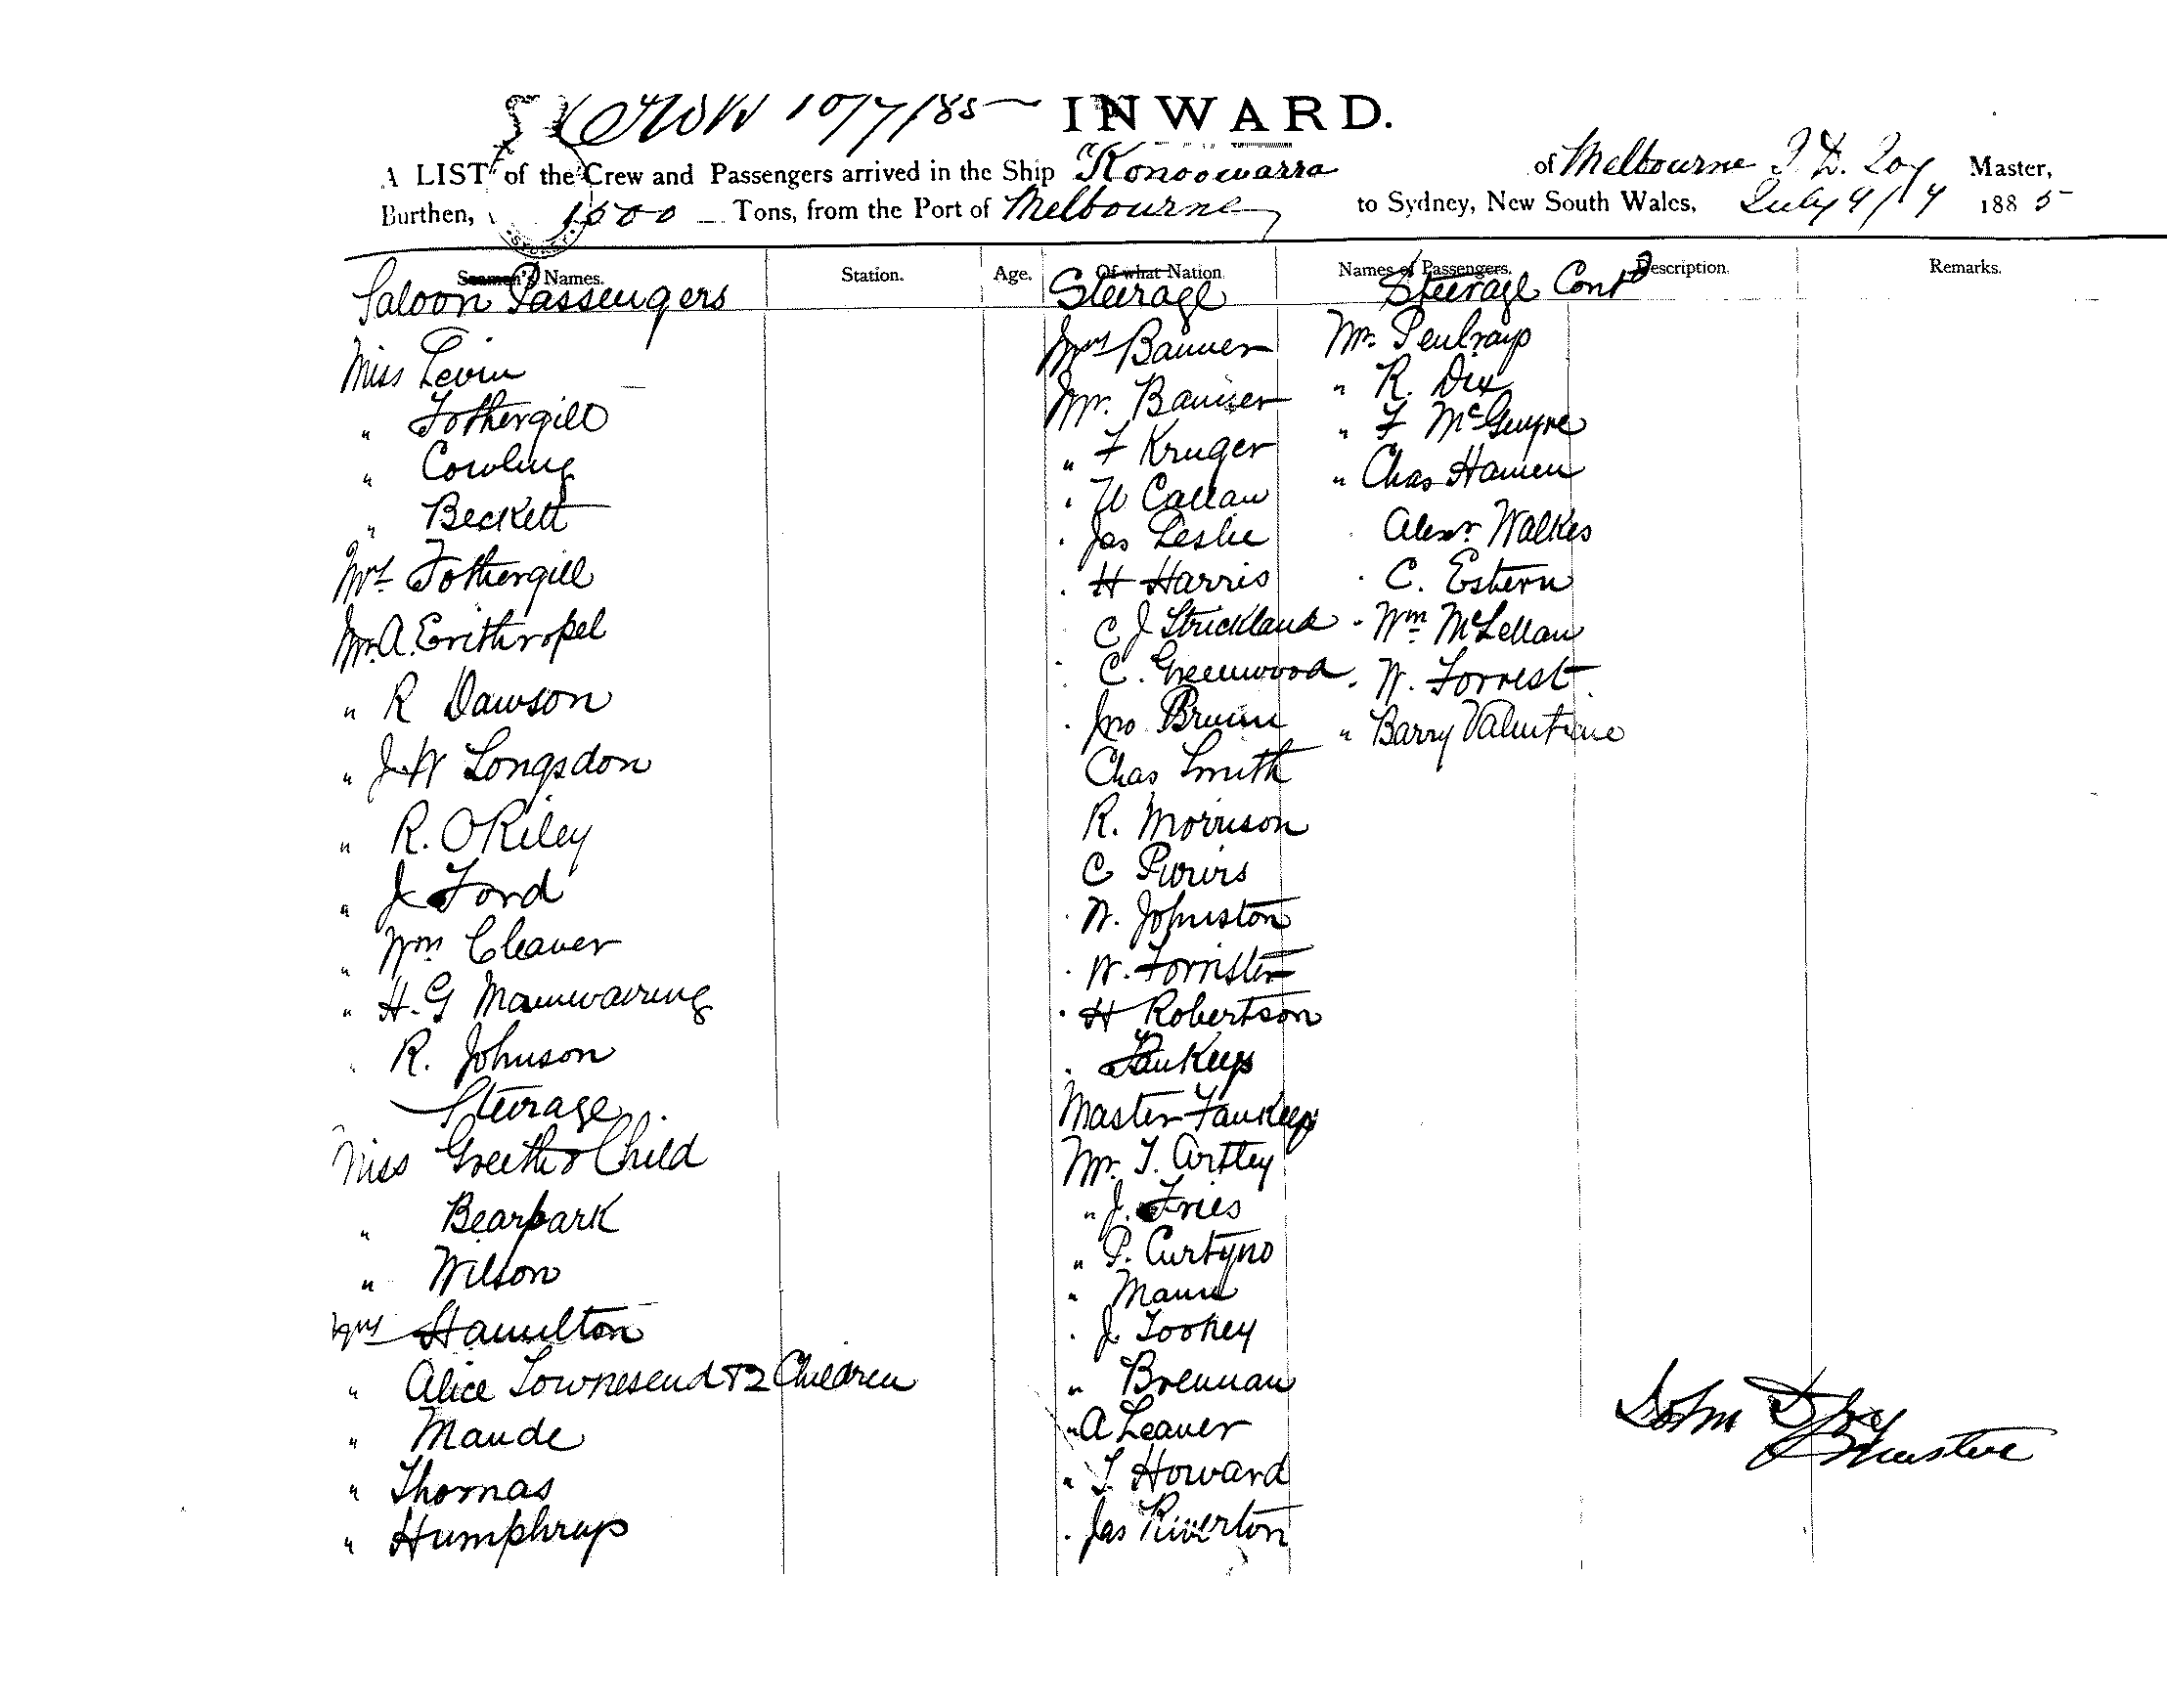 10/7/85 INWARD.
A LIST of the Crew and Passengers arrived in the Ship "Konoowarra of Melbourne Master,
Burthen, 1500 Tons, from the Port of Melbourne to Sydney, New South Wales, July 9/ 1885
Seamen's Names. Station. Age. Of what Nation. Names of Passengers. Description. Remarks.
Saloon Passengers
Miss Levin
" Fothergill
" Cowling
" Beckett
Mrs Fothergill
Mr. A. Erithropel
" R Dawson
" J W Longsdon
" R. O'Riley
" J Ford
" Wm Cleaver
" H. G Mainwaring
R. Johnson
Steerage
Miss & Child
" Bearpark
" Wilson
Mrs Hamilton
" Alice Townesend & 2 Children
" Maude
" Thomas
" Humphreys
Steerage
Mrs Banner
Mr. Banner
" F Kruger
" W Callan
" Jas Leslie
" H Harris
C J Strickland
C. Greenwood
Jno
Chas Smith
R. Morrison
C
W. Johnston
W. Forrister
H Robertson
Master
Mr. T. Artley
" J. Fries
" P.
" Mann
J. Tookey
" Brennan
" A Leaver
" T Howard
Jas Riverton
Steerage Contd
Mr.
" R. Dix
" F McGuyre
" Chas
Alexr.
C. Estern
" Wm McLellan
W. Forrest
" Barry Valentine
John
Master